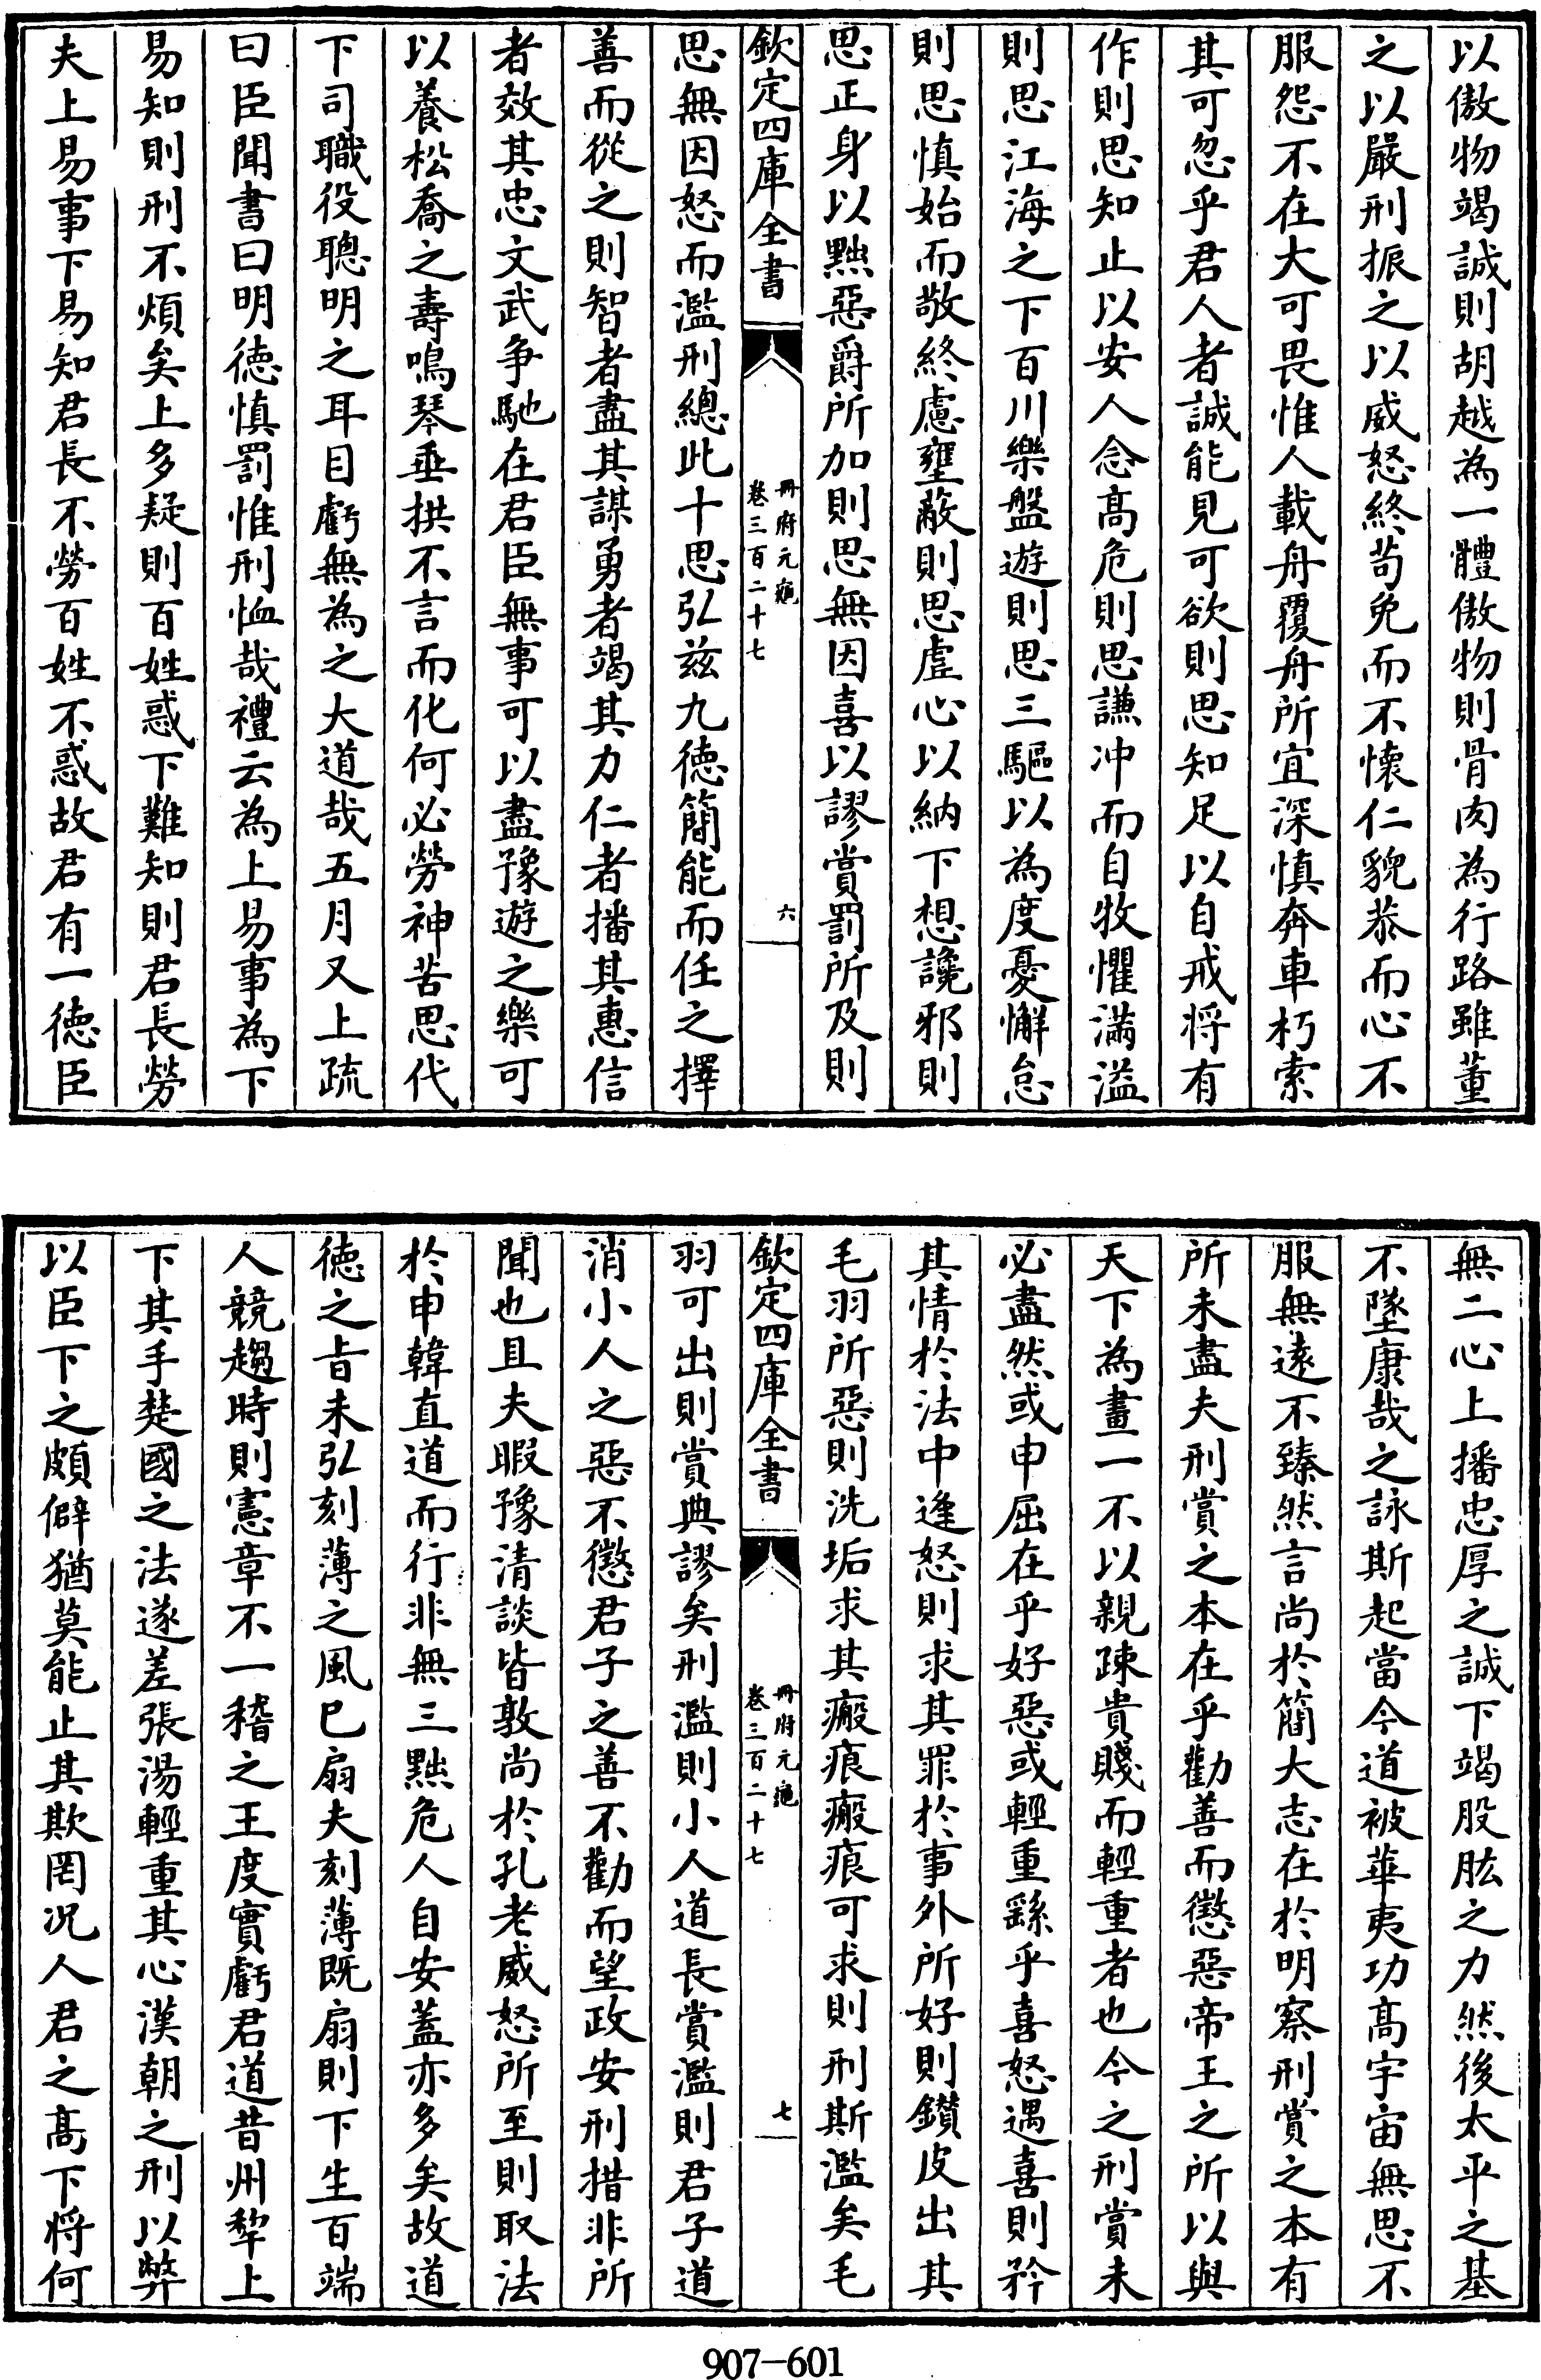 以傲物竭誠則胡越為一體傲物則骨肉為行路雖董
之以嚴刑振之以威怒終茍免而不懷仁貌恭而心不
服怨不在大可畏惟人載舟覆舟所宜深慎奔車朽索
其可忽乎君人者誠能見可欲則思知足以自戒將有
作則思知止以安人念髙危則思謙沖而自牧懼滿溢
則思江海之下百川樂盤遊則思三驅以為度憂懈怠
則思慎始而敬終慮壅蔽則思虛心以納下想讒邪則
思正身以黜惡爵所加則思無因喜以謬賞罰所及則
欽定四庫全書
冊府元龜
卷三百二十七
六
思無因怒而濫刑總此十思弘兹九德簡能而任之擇
善而從之則智者盡其謀勇者竭其力仁者播其惠信
者效其忠文武争馳在君臣無事可以盡豫遊之樂可
以養松喬之壽鳴琴垂拱不言而化何必勞神苦思代
下司職役聰明之耳目虧無為之大道哉五月又上疏
曰臣聞書曰明德慎罰惟刑恤哉禮云為上易事為下
易知則刑不煩矣上多疑則百姓惑下難知則君長勞
夫上易事下易知君長不勞百姓不惑故君有一德臣
無二心上播忠厚之誠下竭股肱之力然後太平之基
不墜康哉之詠斯起當今道被華夷功髙宇宙無思不
服無遠不臻然言尚於簡大志在於明察刑賞之本有
所未盡夫刑賞之本在乎勸善而懲惡帝王之所以與
天下為畫一不以親疎貴賤而輕重者也今之刑賞未
必盡然或申屈在乎好惡或輕重繇乎喜怒遇喜則矜
其情於法中逢怒則求其罪於事外所好則鑚皮出其
毛羽所惡則洗垢求其瘢痕瘢痕可求則刑斯濫矣毛
欽定四庫全書
冊府元龜
卷三百二十七
七
羽可出則賞典謬矣刑濫則小人道長賞濫則君子道
消小人之惡不懲君子之善不勸而望政安刑措非所
聞也且夫暇豫清談皆敦尚於孔老威怒所至則取法
於申韓直道而行非無三黜危人自安蓋亦多矣故道
德之旨未弘刻薄之風已扇夫刻薄既扇則下生百端
人競趨時則憲章不一稽之王度實虧君道昔州犂上
下其手楚國之法遂差張湯輕重其心漢朝之刑以弊
以臣下之頗僻猶莫能止其欺罔况人君之髙下將何
907-601